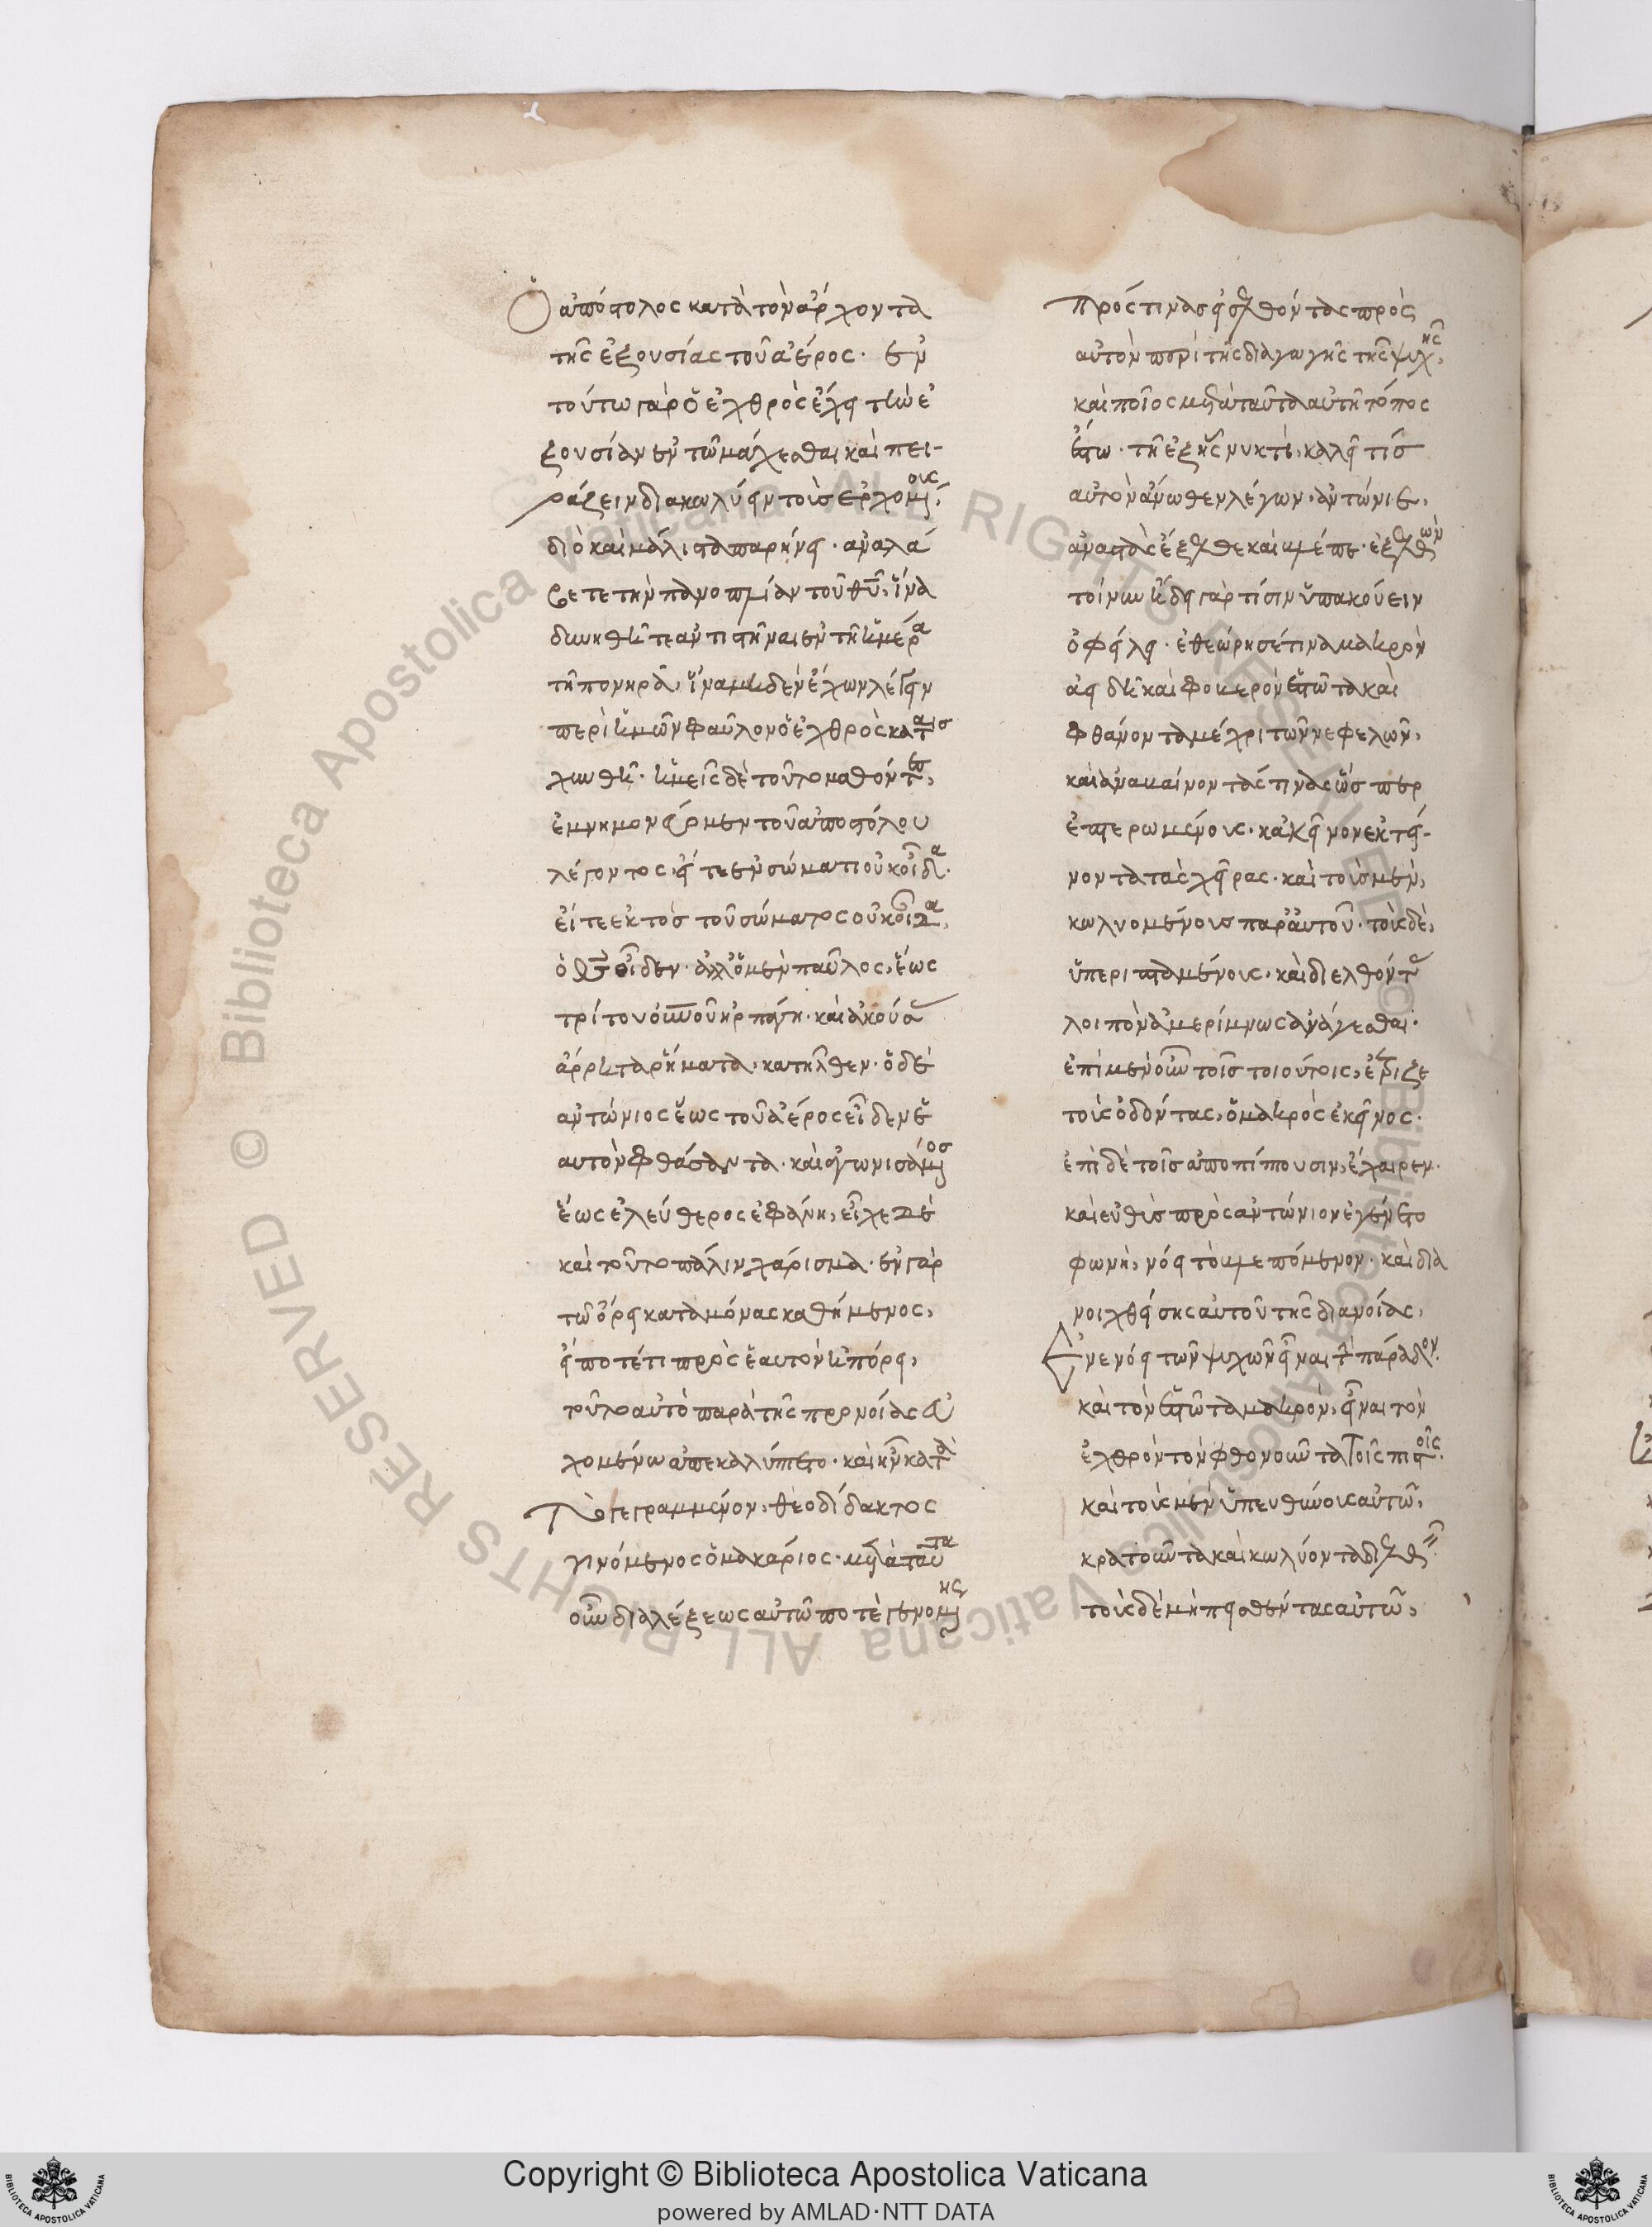 Ὁ ἀπόστολος κατὰ τὸν ἄρχοντα
τῆς ἐξουσίας τοῦ ἀέρος· ἐν
τούτω γὰρ ὁ ἐχθρὸς ἔχει τὴν ἐ
ξουσίαν ἐν τῶ μάχεσθαι καὶ πει-
ράζειν διακωλύειν τοὺς ἐρχομένους·
διὸ καὶ μάλιστα παρήνει· ἀναλά
βετε τὴν πανοπλίαν τοῦ θυ, ἵνα
δυνηθῆτε ἀντιστῆναι ἐν τῆ ἡμέρα
τῆ πονηρᾶ, ἵνα μηδὲν ἔχων λέγειν
περὶ ἡμῶν φαῦλον ὁ ἐχθρὸς καταισ
χυνθῆ· ἡμεῖς δὲ τοῦτο μαθόντες,
ἐμνημονεύομεν τοῦ ἀποστόλου
λέγοντος, εἴτε ἐν σώματι οὐκ οἶδα·
εἴτε ἐκτὸς τοῦ σώματος οὐκ οἶδα,
ὁ θς οἶδεν· ἀλλ' ὁ μὲν παῦλος, ἕως
τρίτου οὐνοῦ ἡρπάγη· καὶ ἀκούσας
ἄρρητα ῥήματα, κατῆλθεν· ὁ δὲ
ἀντώνιος ἕως τοῦ ἀέρος εἶδεν ἑ
αυτὸν φθάσαντα· καὶ ἀγωνισάμενος
ἕως ἐλεύθερος ἐφάνη, εἶχε δὲ
καὶ τοῦτο πάλιν χάρισμα· ἐν γὰρ
τῶ ὄρει κατὰ μόνας καθήμενος,
εἴποτέ τι πρὸς ἑαυτὸν ἠπόρει,
τοῦτο αὐτὸ παρὰ τῆς προνοίας εὐ
χομένω ἀπεκαλύπτετο· καὶ ἦν κατὰ
τὸ γεγραμμένον, θεοδίδακτος
γινόμενος ὁ μακάριος· μετὰ ταῦτα
οὖν διαλέξεως αὐτῶ ποτὲ γενομένης
πρός τινας εἰσελθόντας πρὸς
αὐτὸν περὶ τῆς διαγωγῆς τῆς ψυχῆς,
καὶ ποῖος μετὰ ταῦτα αὐτῆ τόπος
ἔσται· τῆ ἑξῆς νυκτὶ, καλεῖ τίς
αὐτὸν ἄνωθεν λέγων, ἀντώνιε,
ἀναστὰς ἔξελθε καὶ βλέπε· ἐξελθὼν
τοίνυν ἤδει γὰρ τίσιν ὑπακούειν
ὀφείλει· ἐθεώρησέ τινα μακρὸν
ἀειδῆ καὶ φοβερὸν ἑστῶτα καὶ
φθάνοντα μέχρι τῶν νεφελῶν,
καὶ ἀναβαίνοντάς τινας ὥσπερ
ἐπτερωμένους· κἀκεῖνον ἐκτεί-
νοντα τὰς χεῖρας· καὶ τοὺς μὲν,
κωλυομένους παρ' αὐτοῦ· τοὺς δὲ,
ὑπεριπταμένους, καὶ διελθόντας
λοιπὸν ἀμερίμνως ἀνάγεσθαι·
ἐπὶ μὲν οὖν τοῖς τοιούτοις, ἔτριζε
τοὺς ὀδόντας, ὁ μακρὸς ἐκεῖνος·
ἐπὶ δὲ τοῖς ἀποπίπτουσιν, ἔχαιρεν·
καὶ εὐθὺς πρὸς ἀντώνιον ἐγένετο
φωνὴ, νόει τὸ βλεπόμενον· καὶ δια
νοιχθείσης αὐτοῦ τῆς διανοίας,
Ἐνενόει τῶν ψυχῶν εἶναι τὴν πάροδον·
καὶ τὸν ἑστῶτα μακρὸν, εἶναι τὸν
ἐχθρὸν τὸν φθονοῦντα τοῖς πιστοῖς·
καὶ τοὺς μὲν ὑπευθύνους αὐτῶ,
κρατοῦντα καὶ κωλύοντα διελθεῖν·
τοὺς δὲ μὴ πεισθέντας αὐτῶ,
© Biblioteca Apostolica Vaticana ALL RIGHTS RESERVED
© Biblioteca Apostolica Vaticana ALL RIGHTS RESERVED
Copyright © Biblioteca Apostolica Vaticana
powered by AMLAD·NTT DATA
BIBLIOTECA APOSTOLICA VATICANA
BIBLIOTECA APOSTOLICA VATICANA